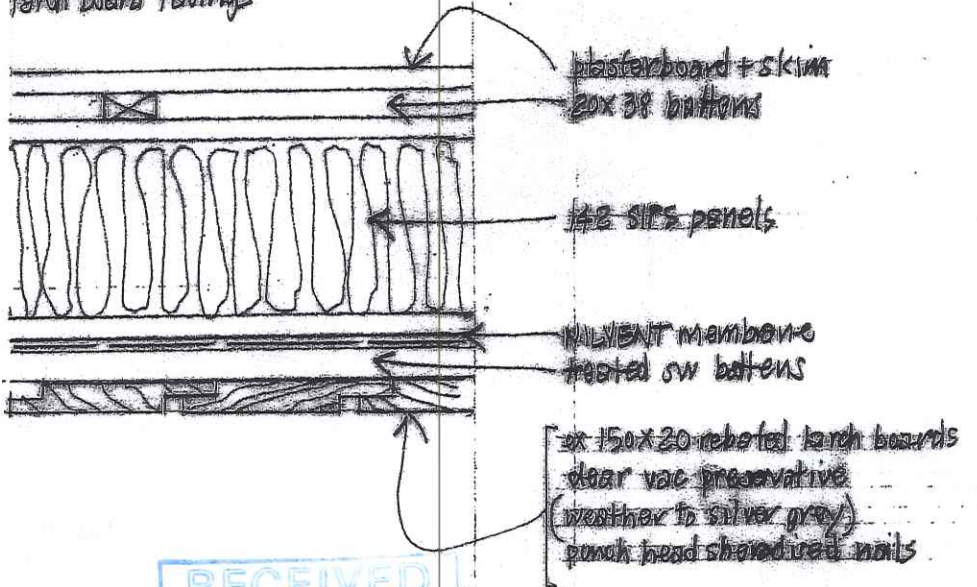 larch board facings
plasterboard + skim
20x38 battens
142 SIPS panels
NILVENT membane
treated sw battens
ex 150x20 rebated larch boards
clear vac preservative
(weather to silver grey)
punch head sheradized nails
RECEIVED